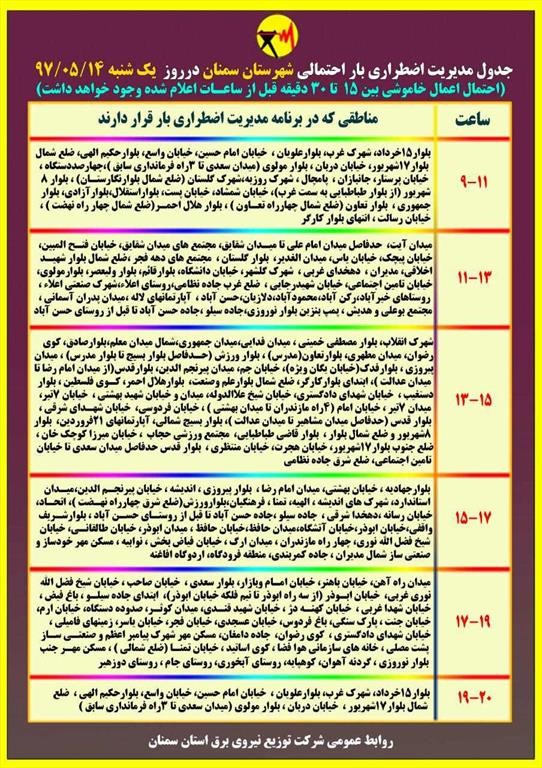 جدول مدیریت اضطراری بار احتمالی شهرستان سمنان درروز یک شنبه ۹۷/۰۵/۱۴
(احتمال اعمال خاموشی بین ۱۵ تا ۳۰ دقیقه قبل از ساعـات اعلام شده وجود خواهد داشت)
ساعت
مناطقی که در برنامه مدیریت اضطراری بار قرار دارند
۹-۱۱
بلوار۱۵خرداد، شهرک غرب، بلوارعلویان ، خیابان امام حسین، خیابان واسع، بلوارحکیم الهی، ضلع شمال
بلوار۱۷شهریور، خیابان دربان ، بلوار مولوی (میدان سعدی تا ۳راه فرمانداری سابق )،چهارصددستگاه ،
خیابان پرستار، جانبازان ، یامچال ، شهرک روزیه،شهرک گلستان (ضلع شمال بلوارنگارستـان) ، بلوار ۸
شهریور (از بلوار طباطبایی به سمت غرب)، خیابان شمشاد، خیابان پست، بلواراستقلال،بلوارآزادی، بلوار
جمهوری ، بلوار تعاون (ضلع شمال چهارراه تعـاون ) ، بلوار هلال احمـر(ضلع شمال چهار راه نهضت ) ،
خیابان رسالت ، انتهای بلوار کارگر
۱۱-۱۳
میدان آیت، حدفاصل میدان امام علی تا میـدان شقایق، مجتمع های میدان شقایق، خیابان فتـح المبین،
خیابان پیچک، خیابان یاس، میدان الغدیر، بلوار گلستان ، مجتمع های دهه فجر، ضلع شمال بلوار شهید
اخلاقی، مدیران ، دهخدای غربی ، شهرک گلشهر، خیابان دانشگاه، بلوارقائم، بلوار ولیعصر، بلوارمولوی،
خیابان تامین اجتماعی، خیابان شهیدرجایی ، ضلع غرب جاده نظامی،روستای اعلاء،شهرک صنعتی اعلاء ،
روستاهای خیرآباد،رکن آباد،محمودآباد،دلازیان،حسن آباد ، آپارتمانهای لاله ،میدان پدران آسمانی ،
مجتمع بوعلی و هدیش ، پمپ بنزین بلوار نوروزی،جاده سیلو ، جاده حسن آباد تا قبل از روستای حسن آباد
۱۳-۱۵
شهرک انقلاب، بلوار مصطفی خمینی ، میدان فدایی،میدان جمهوری،شمال میدان معلم،بلوارصادق، کوی
رضوان، میدان مطهری، بلوارتعاون(مدرس) ، بلوار ورزش (حـدفاصل بلوار بسیج تا بلوار مدرس) ، میدان
پیروزی ، بلوار فدک(خیابان یگان ویژه)، خیابان جم، میدان پیرنجم الدین، بلوارقدس(از میدان امام رضا تا
میدان عدالت )، ابتدای بلوارکارگر، ضلع شمال بلوارعلم وصنعت، بلوارهلال احمر، کـوی فلسطین ، بلوار
دستغیب ، خیابان شهدای دادگستری، خیابان شیخ علاالدوله، میدان و خیابان شهید بهشتی ، خیابان ۷تیر،
میدان ۷تیر ، خیابان امام (۴راه مازندران تا میدان بهشتی ) ، خیابان فردوسی، خیابان شهدای شرقی ،
بلوار قدس (حدفاصل میدان مشاهیر تا میدان عدالت )، بلوار بسیج شمالی، آپارتمانهای ۲۱فروردین، بلوار
۸شهریور و ضلع شمال بلوار ، بلوار قاضی طباطبایی، مجتمع ورزشی حجاب ، خیابان میرزا کوچک خان ،
ضلع جنوب بلوار۱۷شهریور، خیابان هجرت، خیابان منتظری ، بلوار قدس حدفاصل میدان سعدی تا خیابان
تامین اجتماعی، ضلع شرق جاده نظامی
۱۵-۱۷
بلوارجهادیه ، خیابان بهشتی، میدان امام رضا ، بلوار پیروزی ، اندیشه ، خیابان پیرنجـم الدین،میـدان
استاندارد، شهرک های اندیشه ، الهیه، تمنا ، فرهنگیان،بلوارورزش(ضلع شرق چهارراه نهـضت )، اتحـاد،
خیابان رسانه ،دهخدا شرقی ، جاده سیلو ،جاده حسن آباد تا قبل از روستـای حسـن آباد ، بلوارشـریف
واقفی، خیابان ابوذر،خیابان آتشگاه،میدان حافظ،خیابان حافظ ، میدان ابوذر، خیابان طالقانـی، خیابان
شیخ فضل الله نوری، چهار راه مازندران ، میدان ارک ، خیابان فیاض بخش ، نوابیه ، مسکن مهر خودساز و
صنعتی ساز شمال مدیران ، جاده کمربندی، منطقه فرودگاه، اردوگاه افاغنه
۱۷-۱۹
میدان راه آهن، خیابان باهنر، خیابان امـام وبازار، بلوار سعدی ، خیابان صاحب ، خیابان شیخ فضل الله
نوری غربی ، خیابان ابـوذر (از سه راه ابوذر تا نیم فلکه خیابان ابوذر)، ابتدای جاده سیلـو ، باغ فیض ،
خیابان شهدا غربی ، خیابان کهنه دژ ، خیابان شهید قندی، میدان کوثـر، صدوده دستگاه، خیابان ارم،
خیابان جنت ، پارک سنگی، باغ فردوس، خیابان عسجدی، خیابان فجر، خیابان یاسر، زمینهای فامیلی ،
خیابان شهدای دادگستری ، کوی رضوان، جاده دامغان، مسکن مهر شهرک پیامبر اعظم و صنعتـی ساز
پشت مصلی ، خانه های سازمانی هوا فضا ، کوی اساتید ، خیابان تمنـا (ضلع شمالی ) ، مسکن مهـر جنب
بلوار نوروزی ، گردنه آهوان، کوهپایه، روستای آبخوری، روستای جام ، روستای دوزهیر
۱۹-۲۰
بلوار۱۵خرداد، شهرک غرب، بلوارعلویان ، خیابان امام حسین، خیابان واسع، بلوارحکیم الهی ، ضلع
شمال بلوار۱۷شهریور ، خیابان دربان ، بلوار مولوی (میدان سعدی تا ۳راه فرمانداری سابق )
روابط عمومی شرکت توزیع نیروی برق استان سمنان